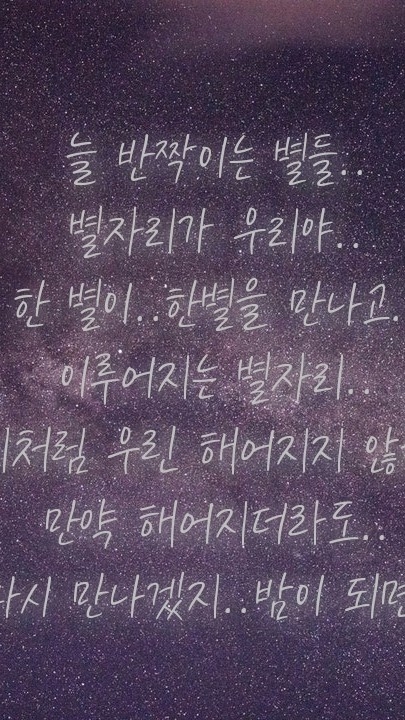 늘 반짝이는 별들..
별자리가 우리야..
한 별이..한별을 만나고.
이루어지는 별자리..
처럼 우린 해어지지 않
만약 해어지더라도..
다시 만나겠지..밤이 되면